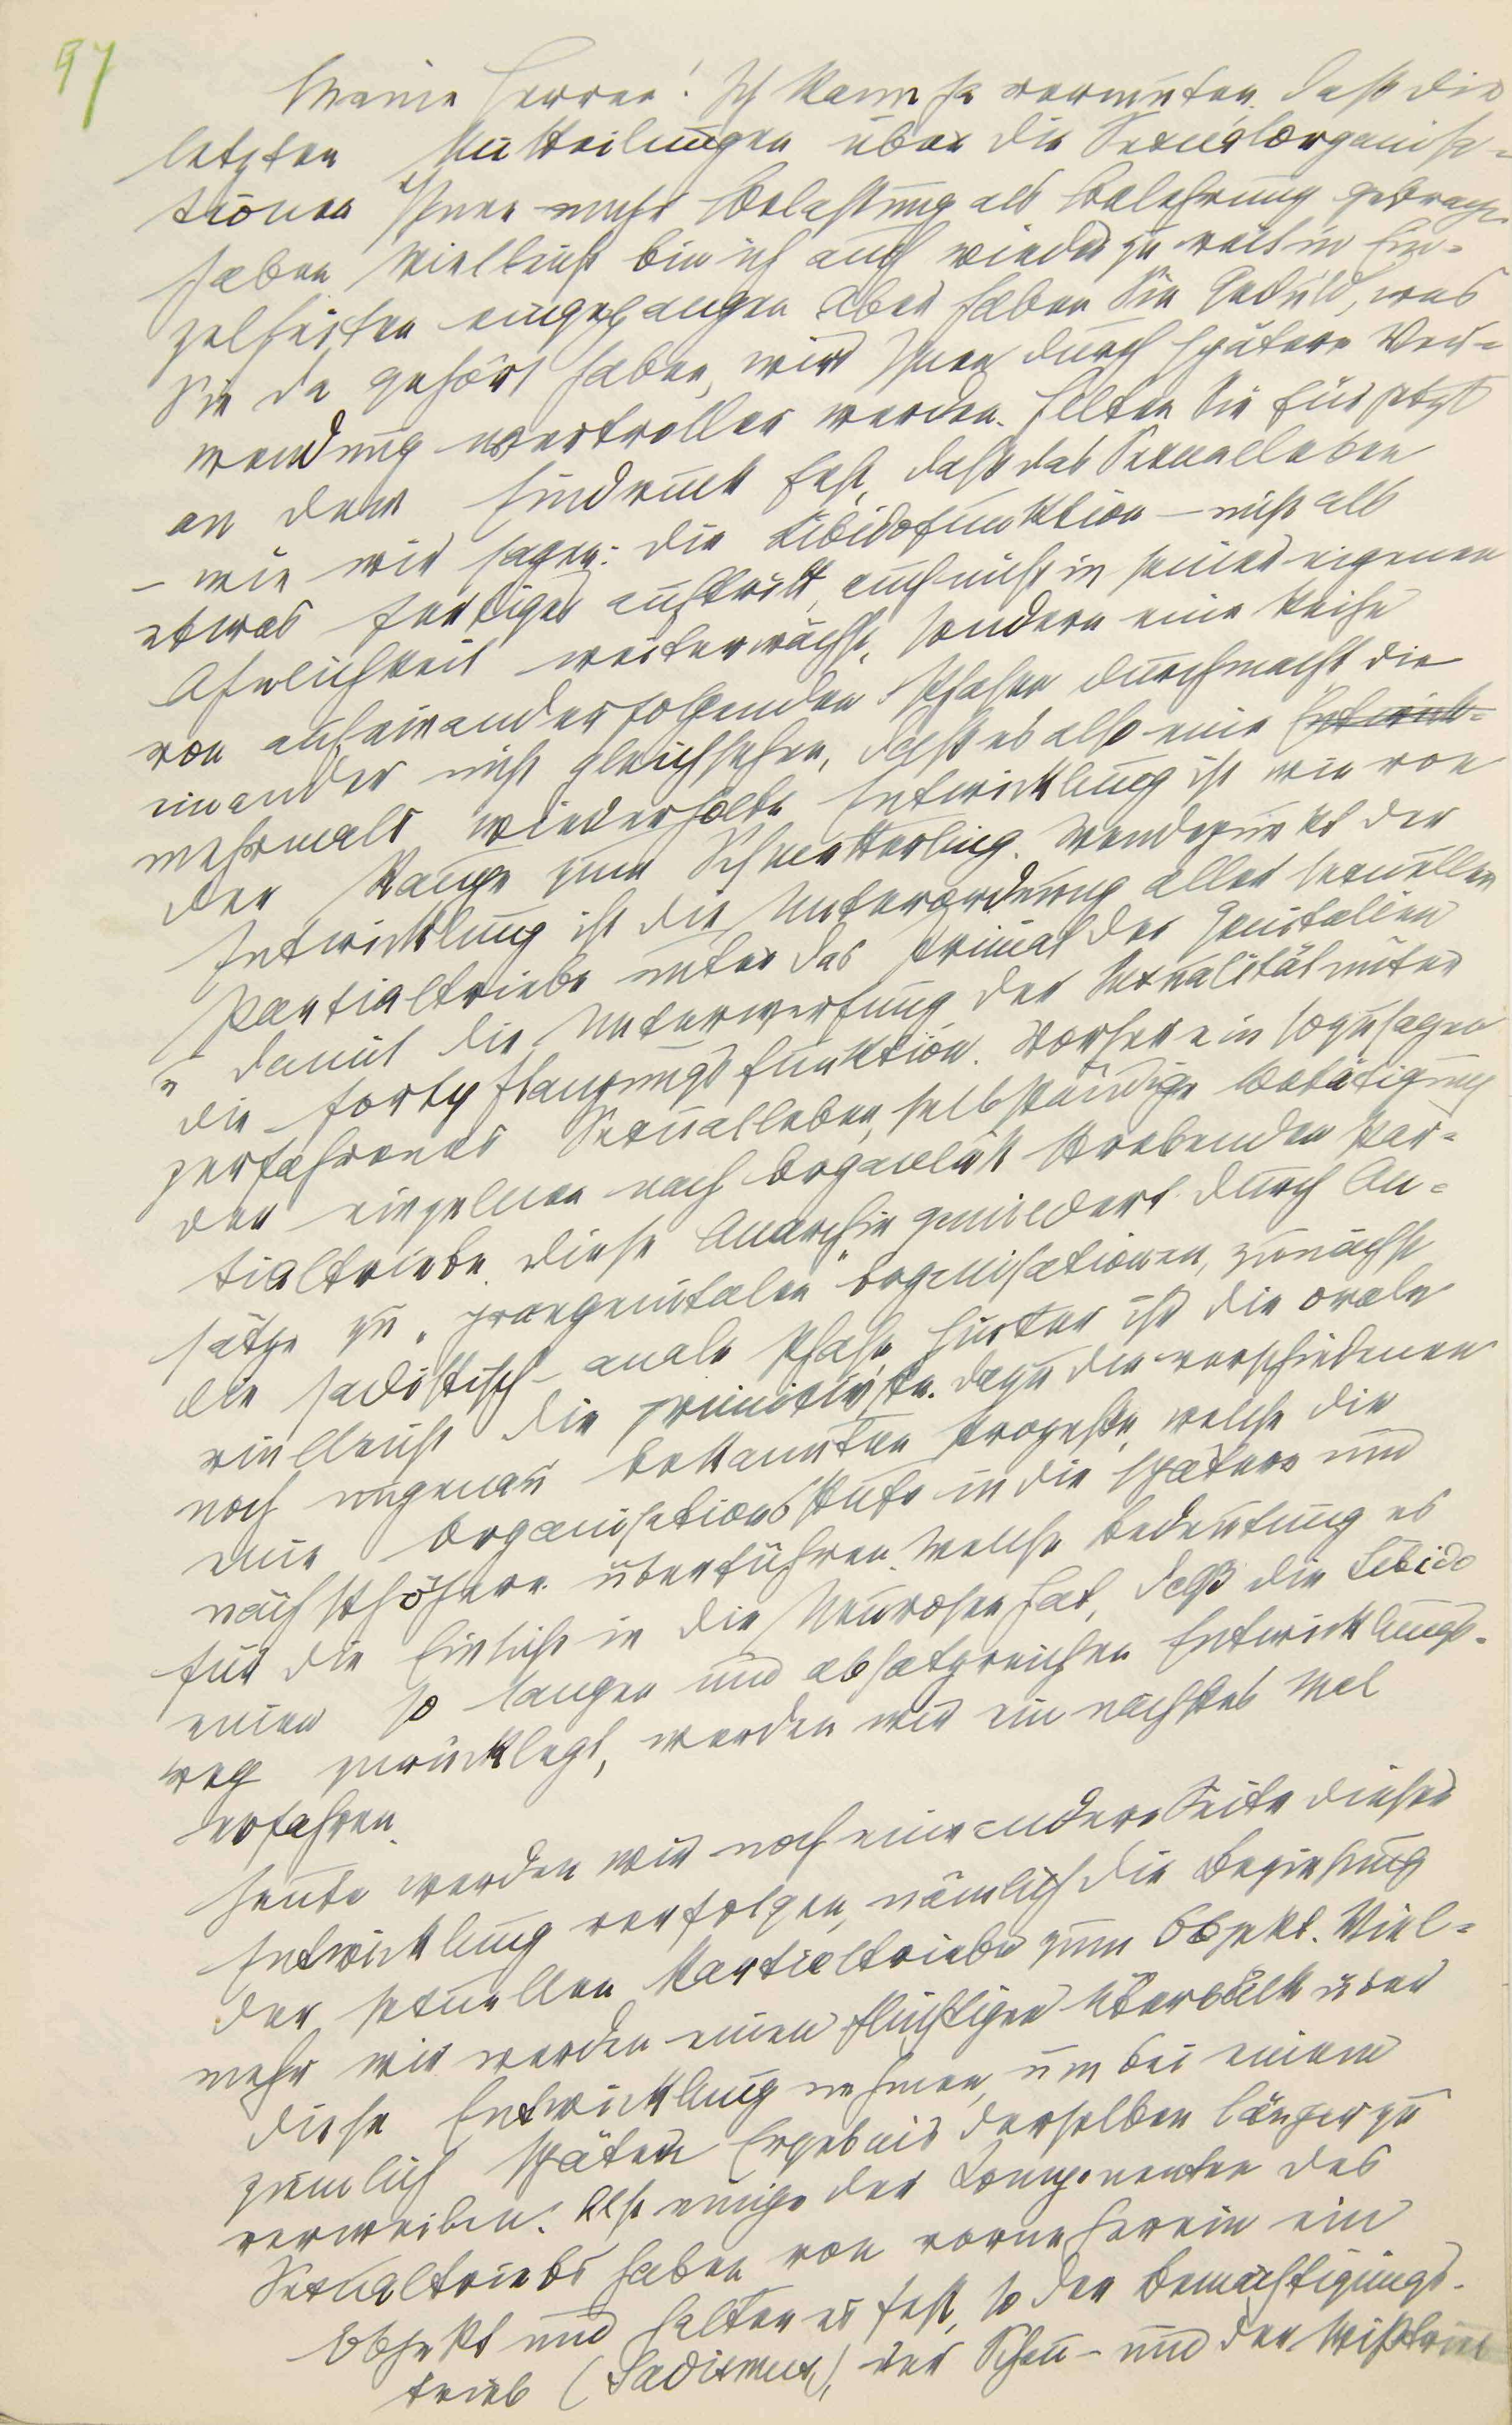 97
Meine Herren! Ich kann ja vermuten, daß die
letzten Mitteilungen über die Sexualorganisa-
tionen Ihnen mehr Belastung als Belehrung gebracht
haben. Vielleicht bin ich auch wieder zu weit in Ein-
zelheiten eingegangen. Aber haben Sie Geduld, was
Sie da gehört haben, wird Ihnen durch spätere Ver-
wendung wertvoller werden. Halten Sie für jetzt
an dem Eindruck fest, daß das Sexualleben
– wie wir sagen: die Libidofunktion – nicht als
etwas fertiges auftritt, auch nicht in seiner eigenen
Ähnlichkeit weiterwächst, sondern eine Reihe
von aufeinanderfolgenden Phasen durchmacht die
einander nicht gleichsehen, daß es also eine Entwick-
mehrmals wiederholte Entwicklung ist wie von
der Raupe zum Schmetterling. Wendepunkt der
Entwicklung ist die Unterordnung aller sexuellen
Partialtriebe unter das Primat der Genitalien
u damit die Unterwerfung der Sexualität unter
die Fortpflanzungsfunktion. Vorher ein sozusagen
zerfahrenes Sexualleben, selbständige Betätigung
der einzelnen nach Organlust strebenden Par-
tialtriebe. Diese Anarchie gemildert durch An-
sätze zu „praegenitalen" Organisationen, zunächst
die sadistisch-anale Phase, hinter ihr die orale
vielleicht die primitivste. Dazu die verschiedenen
noch ungenau bekannten Prozesse, welche die
eine Organisationsstufe in die spätere und
nächsthöhere überführen. Welche Bedeutung es
für die Einsicht in die Neurosen hat, daß die Libido
einen so langen und absatzreichen Entwicklungs-
weg zurücklegt, werden wir ein nächstes Mal
erfahren.
Heute werden wir noch eine andere Seite dieser
Entwicklung verfolgen, nämlich die Beziehung
der sexuellen Partialtriebe zum Objekt. Viel-
mehr wir werden einen flüchtigen Überblick über
diese Entwicklung nehmen, um bei einem
ziemlich späten Ergebnis derselben länger zu
verweilen. Also einige der Componenten des
Sexualtriebs haben von vorneherein ein
Objekt und halten es fest, so der Bemächtigungs-
trieb (Sadismus), der Schau- und der Wißtrieb